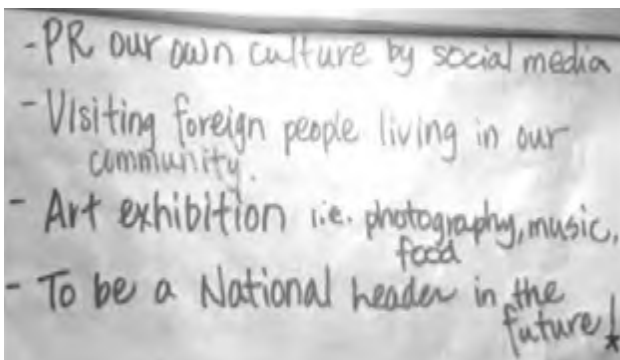 - PR our own culture by social media
- Visiting foreign people living in our
community.
- Art exhibition i.e. photography, music,
food
- To be a National header in the
future!